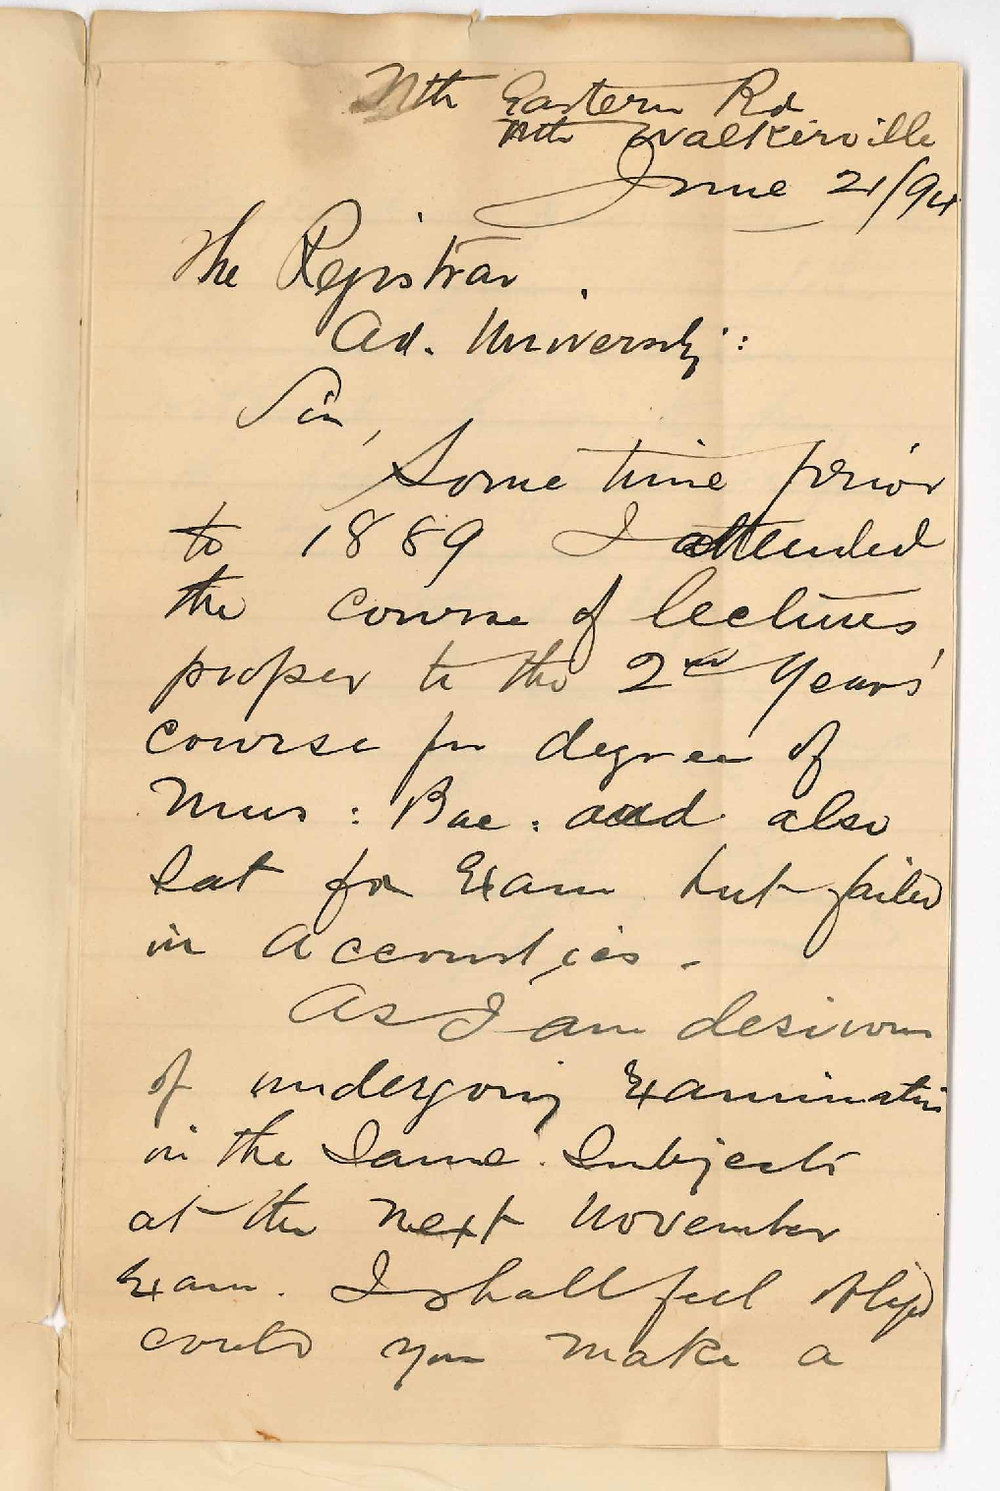 Nth Eastern Rd
Nth Walkerville
June 21/94
The Registrar.
Ad. University:
Sir,
Some time prior
to 1889 I attended
the course of lectures
proper to the 2nd Years'
course for degree of
Mus: Bac: and also
Sat for Exam but failed
in Accoustics.
As I am desirous
of undergoing Examination
in the Same Subjects
at the next November
Exam. I shall feel oblgd
could you make a